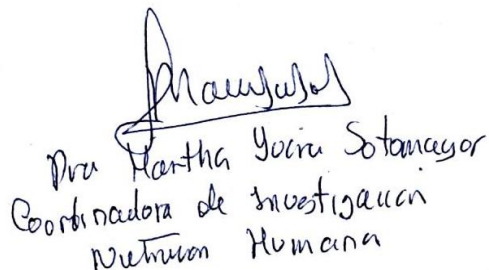 Dra Martha Yucira Sotomayor
Coordinadora de Investigación
Nutricion Humana